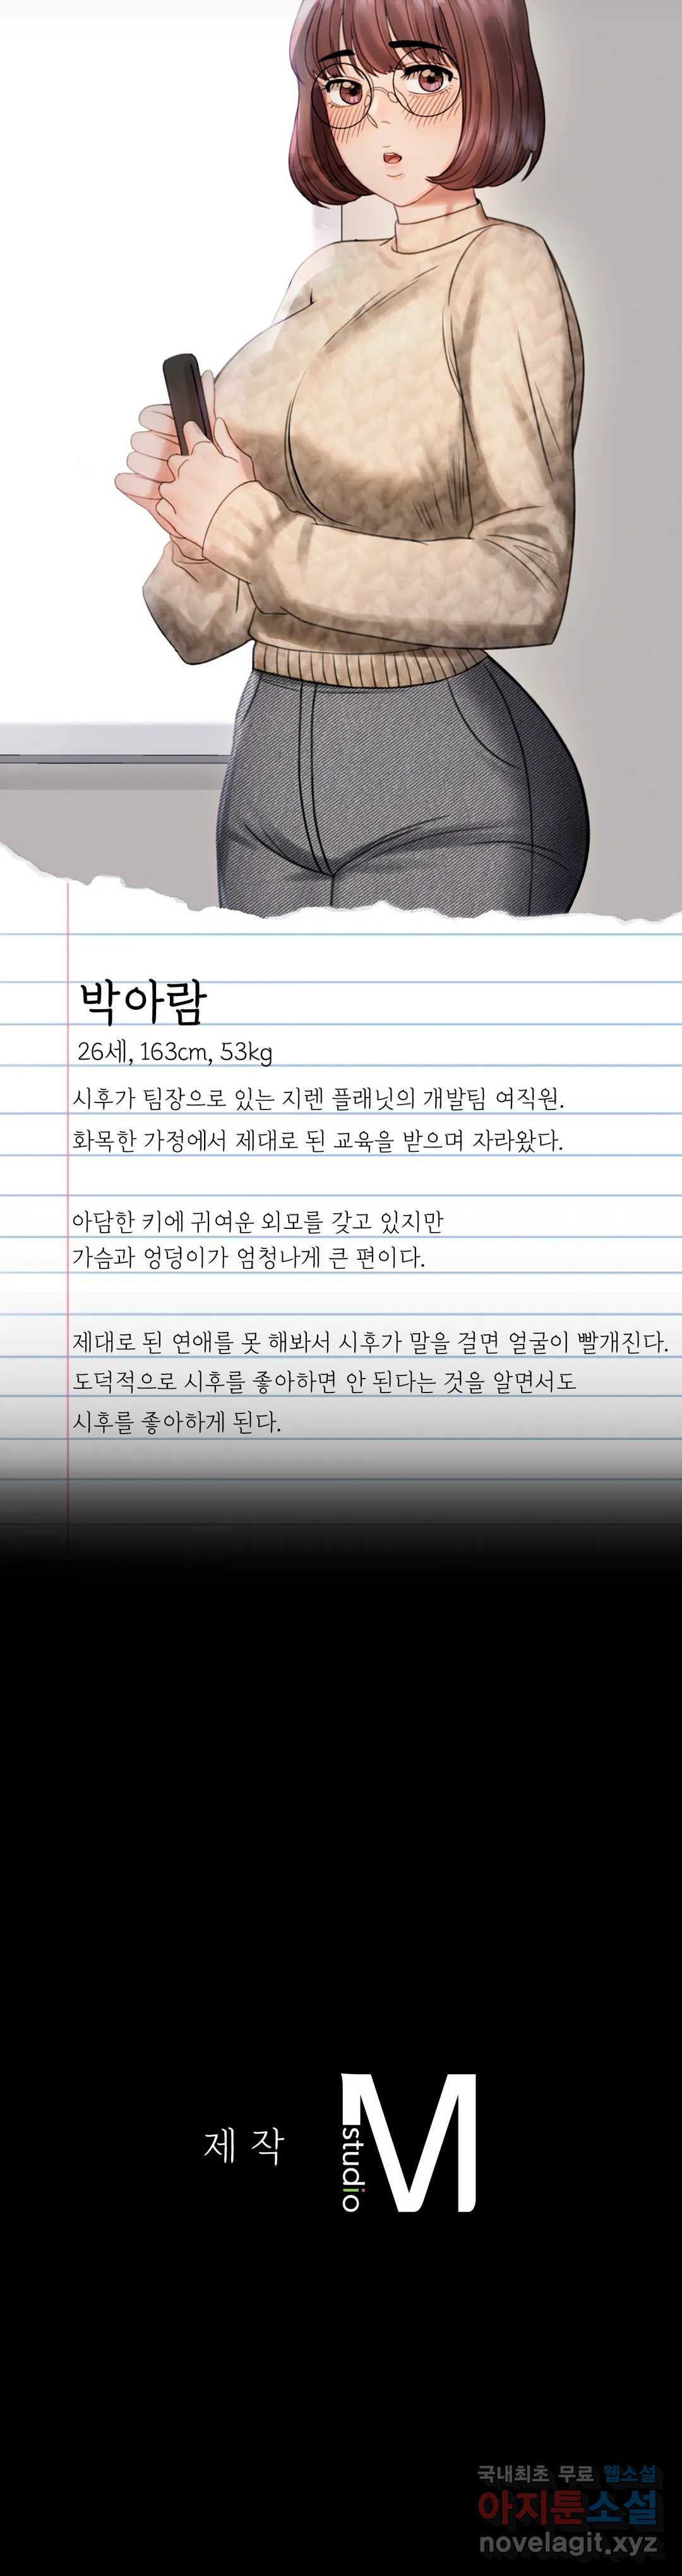 박아람
26세, 163cm, 53kg
시후가 팀장으로 있는 지렌 플래닛의 개발팀 여직원.
화목한 가정에서 제대로 된 교육을 받으며 자라왔다.
아담한 키에 귀여운 외모를 갖고 있지만
가슴과 엉덩이가 엄청나게 큰 편이다.
제대로 된 연애를 못 해봐서 시후가 말을 걸면 얼굴이 빨개진다.
도덕적으로 시후를 좋아하면 안 된다는 것을 알면서도
시후를 좋아하게 된다.
제작 M studio
국내최초 무료 웹소설
아지툰소설
novelagit.xyz